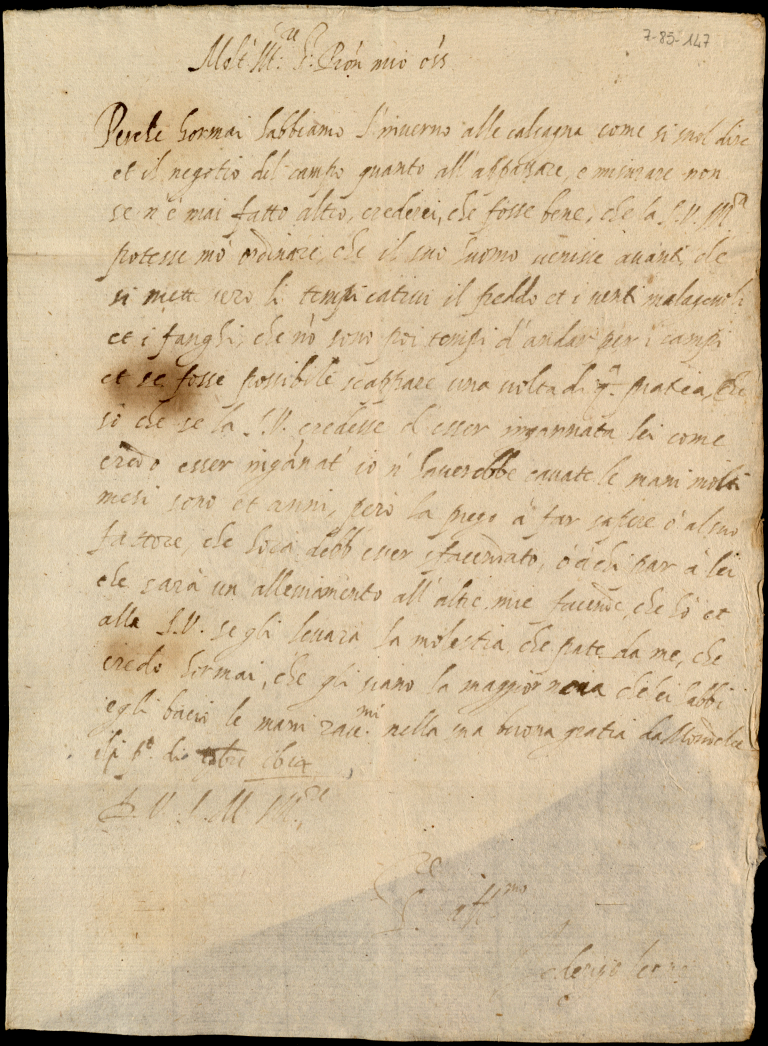 7-85-147
Molt' Ill.re S.r Pron mio oss.
Perche hormai habbiamo l'inverno alle calcagna come si suol dire
et il negotio del campo quanto all' appassare, e misurare non
se n'è mai fatto altro, crederei, che fosse bene, che la S.V. M.a
potesse mò ordinare, che il suo huomo venisse avanti, che
si mettessero li tempi cativi il freddo et i venti malagevoli
et i fanghi, che nò sono poi tempi d'andar per i campi
et se fosse possibile scappare una volta di q.a pratica, che
sò che se la S.V. credesse d'esser ingannata lei come
credo esser ingānat' io n'haverebbe cavate le mani molti
mesi sono et anni, però la prego à far sapere ò al suo
fattore, che hora debb' esser sfacendato, ò à chi par à lei
che sarà un alleviamento all' altre mie facende, che hò et
alla S.V. se gli levarà la molestia, che pate da me, che
credo hormai, che gli siano la maggior noia che lei habbi
e gli bacio le mani racc.mi nella sua buona gratia da
il p.o di
D. V. S. M. Ill.re
aff.mo